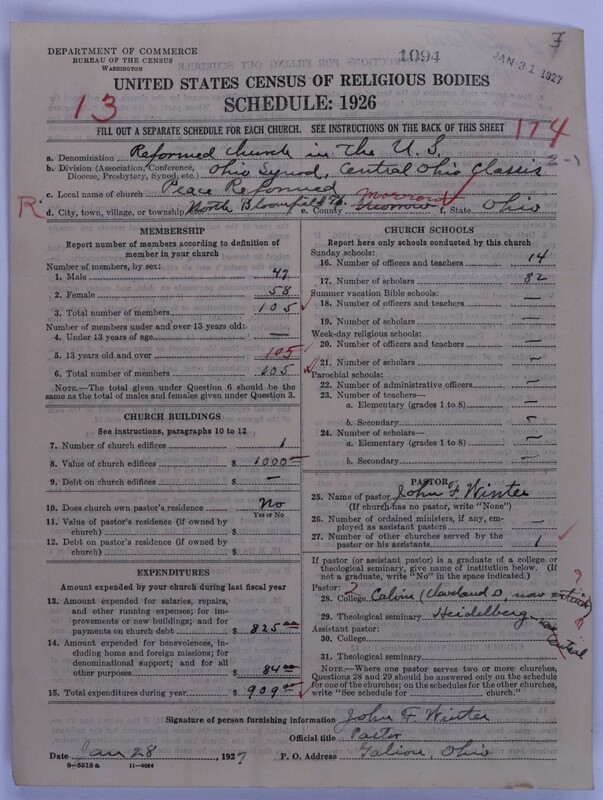 DEPARTMENT OF COMMERCE
BUREAU OF THE CENSUS
WASHINGTON
1094
JAN 31 1927
7
UNITED STATES CENSUS OF RELIGIOUS BODIES
SCHEDULE: 1926
13
174
FILL OUT A SEPARATE SCHEDULE FOR EACH CHURCH. SEE INSTRUCTIONS ON THE BACK OF THIS SHEET
a. Denomination Reformed Church in the U.S.
b. Division (Association, Conference, Diocese, Presbytery, Synod, etc.) Ohio Synod, Central Ohio Classis 2-1
c. Local name of church Peace Reformed
R d. City, town, village, or township North Bloomfield Tp. e. County Morrow f. State Ohio
MEMBERSHIP
Report number of members according to definition of
member in your church
Number of members, by sex:
1. Male 47
2. Female 58
3. Total number of members 105
Number of members under and over 13 years old:
4. Under 13 years of age —
5. 13 years old and over 105
6. Total number of members 105
NOTE.—The total given under Question 6 should be the
same as the total of males and females given under Question 3.
CHURCH BUILDINGS
See instructions, paragraphs 10 to 12
7. Number of church edifices 1
8. Value of church edifices $ 1000
9. Debt on church edifices $ —
10. Does church own pastor's residence? No
Yes or No
11. Value of pastor's residence (if owned by
church) $
12. Debt on pastor's residence (if owned by
church) $
EXPENDITURES
Amount expended by your church during last fiscal year
13. Amount expended for salaries, repairs,
and other running expenses; for im-
provements or new building; and for
payments on church debt $ 825.00
14. Amount expended for benevolences, in-
cluding home and foreign missions; for
denominational support; and for all
other purposes $ 84.00
15. Total expenditures during year $ 909.00
CHURCH SCHOOLS
Report here only schools conducted by this church
Sunday schools:
16. Number of officers and teachers 14
17. Number of scholars 82
Summer vacation Bible schools:
18. Number of officers and teachers —
19. Number of scholars —
Week-day religious schools:
20. Number of officers and teachers —
21. Number of scholars —
Parochial schools:
22. Number of administrative officers —
23. Number of teachers—
a. Elementary (grades 1 to 8) —
b. Secondary —
24. Number of scholars—
a. Elementary (grades 1 to 8) —
b. Secondary —
PASTOR
25. Name of pastor John F. Winter
(If church has no pastor, write "None")
26. Number of ordained ministers, if any, em-
ployed as assistant pastors —
27. Number of other churches served by the
pastor or his assistants 1
If pastor (or assistant pastor) is a graduate of a college or
theological seminary, give name of institution below. (If
not a graduate, write "No" in the space indicated.)
Pastor:
28. College Calvin (Cleveland O. now extinct) ?
29. Theological seminary Heidelberg now Central
Assistant pastor:
30. College
31. Theological seminary
NOTE.—Where one pastor serves two or more churches,
Questions 28 and 29 should be answered only on the schedule
for one of the churches; on the schedules for the other churches,
write "See schedule for church."
Signature of person furnishing information John F. Winter
Official title Pastor
Date Jan 28, 1927 P. O. Address Galion, Ohio
8—5518 a 11—9064